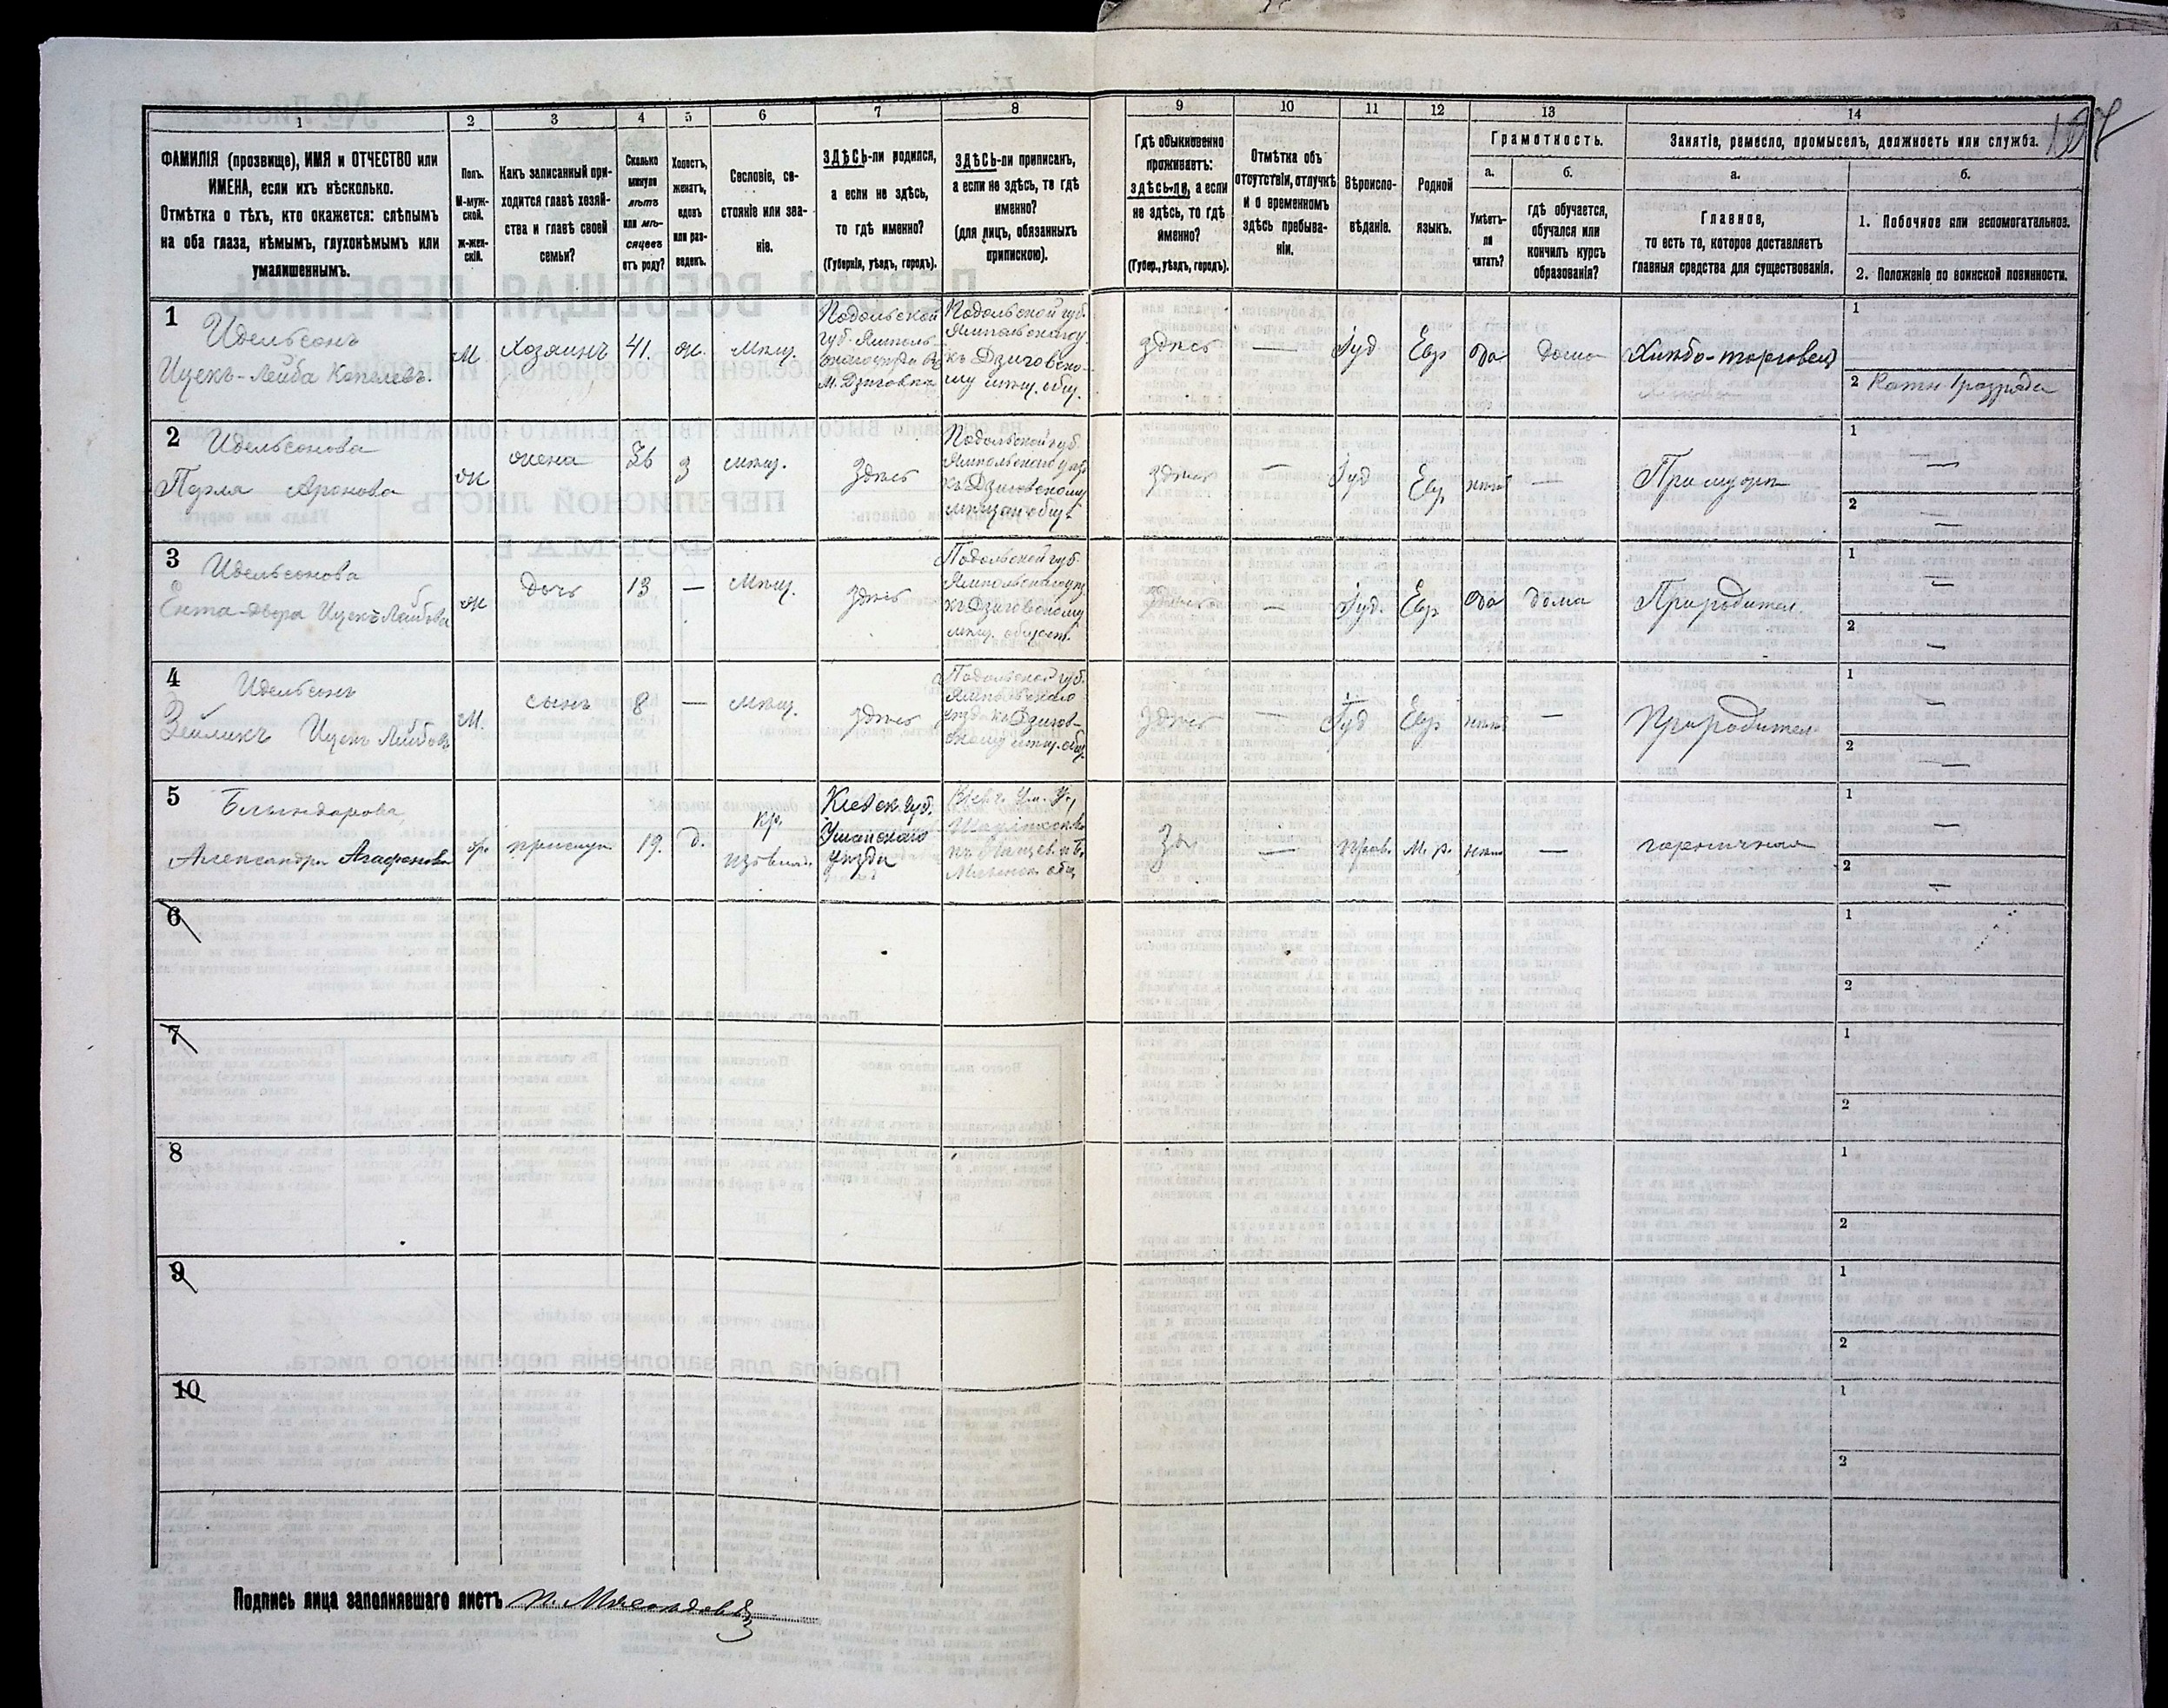 1
ФАМИЛІЯ (прозвище), ИМЯ и ОТЧЕСТВО или
ИМЕНА, если ихъ нѣсколько.
Отмѣтка о тѣхъ, кто окажется: слѣпымъ
на оба глаза, нѣмымъ, глухонѣмымъ или
умалишеннымъ.
2
Полъ.
М-муж-
ской.
ж-жен-
скій.
3
Какъ записанный при-
ходится главѣ хозяй-
ства и главѣ своей
семьи?
4
Сколько
минуло
лѣтъ
или мѣ-
сяцевъ
отъ роду?
5
Холостъ,
женатъ,
вдовъ
или раз-
веденъ.
6
Сословіе, со-
стояніе или зва-
ніе.
7
ЗДѢСЬ-ли родился,
а если не здѣсь,
то гдѣ именно?
(Губернія, уѣздъ, городъ).
8
ЗДѢСЬ-ли приписанъ,
а если не здѣсь, то гдѣ
именно?
(для лицъ, обязанныхъ
припискою).
9
Гдѣ обыкновенно
проживаетъ:
здѣсь-ли, а если
не здѣсь, то гдѣ
именно?
(Губер., уѣздъ, городъ).
10
Отмѣтка объ
отсутствіи, отлучкѣ
и о временномъ
здѣсь пребыва-
ніи.
11
Вѣроиспо-
вѣданіе.
12
Родной
языкъ.
13
Грамотность.
а.
Умѣетъ-
ли
читать?
б.
гдѣ обучается,
обучался или
кончилъ курсъ
образованія?
14
Занятіе, ремесло, промыселъ, должность или служба.
а.
Главное,
то есть то, которое доставляетъ
главныя средства для существованія.
б.
1. Побочное или вспомогательное.
2. Положеніе по воинской повинности.
1
Идельсонъ
Ицекъ-Лейба Копелевъ.
М.
Хозяинъ
41.
Ж.
Мѣщ.
Подольской
губ. Ямполь-
скаго уѣзда въ
М. Дзиговка
Подольской губ.
Ямпольскаго у
къ Дзиговско-
му мѣщ. общ.
здѣсь
—
Іуд
Евр
да
дома
Хлѣбо-торговецъ
1
2 Ратн. 1 разряда
2
Идельсонова
Перла Аронова
Ж
жена
36
З
мѣщ.
здѣсь
Подольской губ
Ямпольскаго уѣз
къ Дзиговскому
мѣщан общ.
здѣсь
—
Іуд
Евр
нѣтъ
—
При мужѣ
1 —
2 —
3
Идельсонова
Ента-Двора Ицекъ Лейбова
Ж
Дочь
13
—
Мѣщ.
здѣсь
Подольской губ.
Ямпольскаго уѣз
къ Дзиговскому
мѣщ. общест.
здѣсь
—
Іуд.
Евр
да
дома
При родител.
1 —
2 —
4
Идельсонъ
Зейликъ Ицекъ Лейбовъ
М.
сынъ
8
—
мѣщ.
здѣсь
Подольской губ.
Ямпольскаго
уѣзда къ Дзигов-
скому мѣщ. общ.
здѣсь
—
Іуд
Евр
нѣтъ
—
При родител
1 —
2 —
5
Александра Агафонова
ж.
прислуг
19.
д.
кр.
Кіевск. губ.
Уманскаго
уѣзда
—
прав.
М. р.
нѣт
—
горничная
1 —
2 —
6
1
2
7
1
2
8
1
2
9
1
2
10
1
2
Подпись лица заполнявшаго листъ